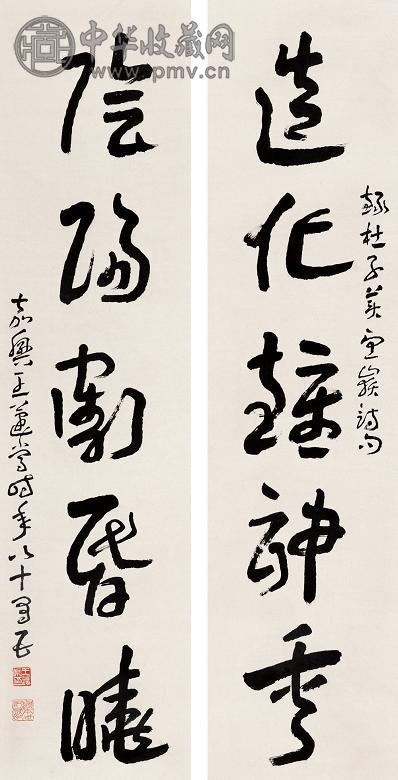 中华收藏网
www.pmv.cn
造化鍾神秀
錄杜子美望嶽詩句
陰陽割昏曉
嘉興王蘧常時年八十